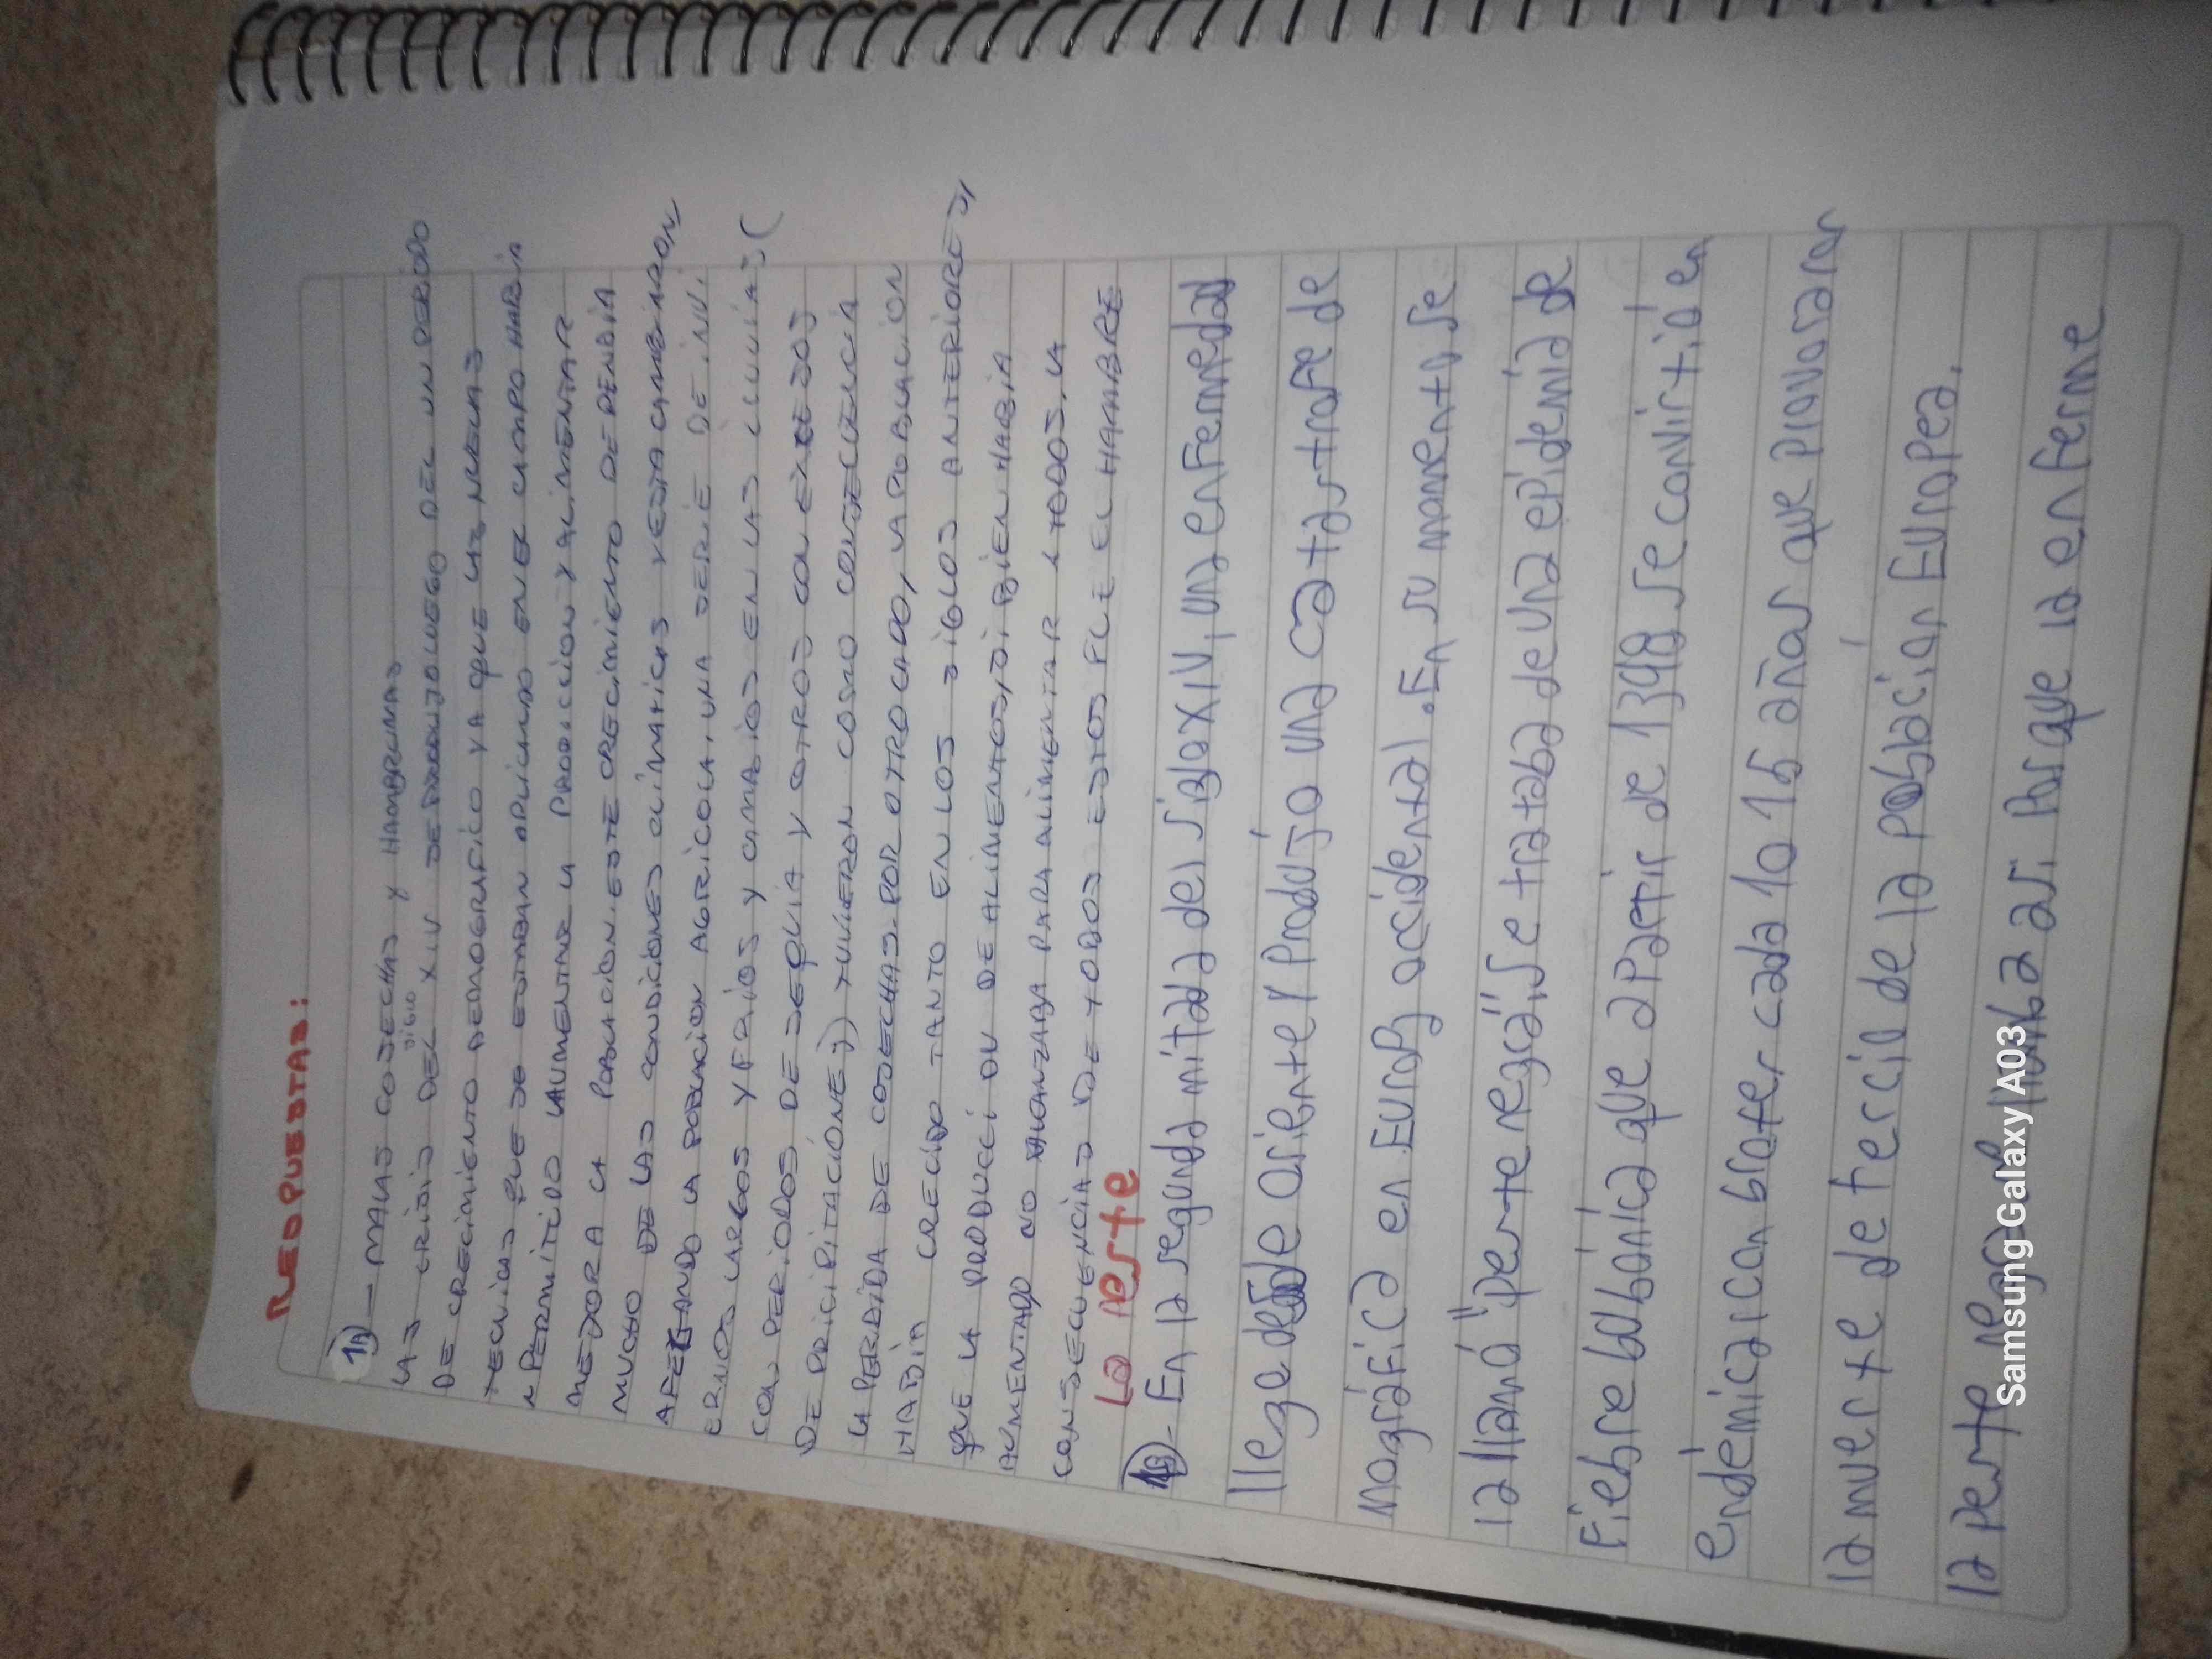 RESPUESTAS:
1A)- MALAS COSECHAS Y HAMBRUNAS
LAS CRISIS DEL SIGLO XIV SE PRODUJO LUEGO DEL UN PERIODO
DE CRECIMIENTO DEMOGRAFICO YA QUE LAS NUEVAS
TECNICAS QUE SE ESTABAN APLICANDO EN EL CAMPO HABIA
N PERMITIDO AUMENTAR LA PRODUCCION Y ALIMENTAR
MEJOR A LA POBLACION. ESTE CRECIMIENTO DEPENDIA
MUCHO DE LAS CONDICIONES CLIMATICAS Y ESTA CAMBIARON,
AFECTANDO LA POBLACION AGRICOLA, UNA SERIE DE INVI
ERNOS LARGOS Y FRIOS Y CAMBIOS EN LAS LLUVIAS (
CON PERIODOS DE SEQUIA Y OTROS CON EXCESOS
DE PRICIPITACIONES) TUVIERON COMO CONSECUENCIA
LA PERDIDA DE COSECHAS. POR OTRO LADO, LA POBLACION
HABIA CRECIDO TANTO EN LOS SIGLOS ANTERIORES,
QUE LA PRODUCCION DE ALIMENTOS, SI BIEN HABIA
AUMENTADO NO ALCANZABA PARA ALIMENTAR A TODOS. LA
CONSECUENCIAS DE TODOS ESTOS FUE EL HAMBRE
La peste
1B)- En la segunda mitad del siglo XIV, una enfermedad
llega desde oriente y produjo una catastrofe de
mográfica en Europa occidental. En su momento se
la llamó "peste negra", se trataba de una epidemia de
fiebre bubónica que a partir de 1348 se convirtió en
endémica, con brotes cada 10 o 15 años que provocaron
la muerte de tercil de la población Europea.
la peste negra llamba asi porque la enferme
Samsung Galaxy A03